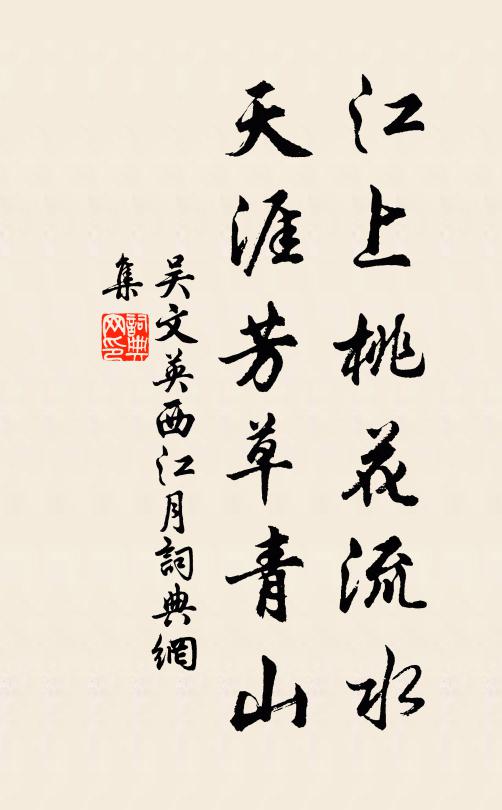 江上桃花流水
天涯芳草青山
吳文英西江月詞典網
集
詞典
网印